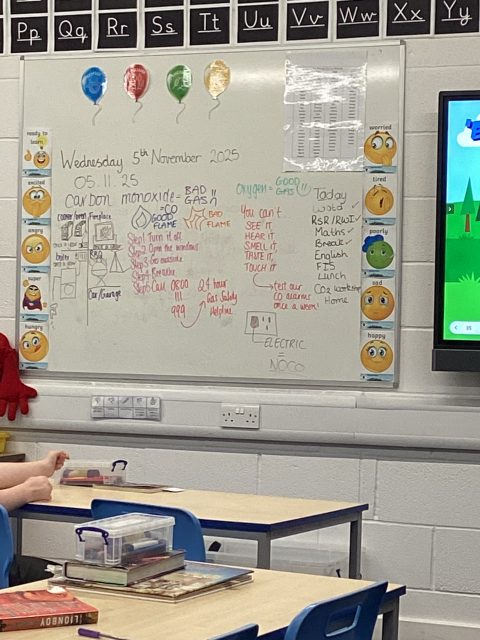 Pp Qq Rr Ss Tt Uu Vv Ww Xx Yy
Wednesday 5th November 2025
05.11.25
Carbon monoxide = BAD GAS!!
=CO
GOOD FLAME
BAD FLAME
Fireplace
BBQ
Car/Garage
Step1 Turn it off
Step2 Open the windows
Step3 Go outside
Step4 Breathe
Step5 Call 0800
111
999
24 hour
Gas Safety
Helpline
Oxygen = GOOD GAS!!
You can't...
SEE IT
HEAR IT
SMELL IT
TASTE IT
TOUCH IT
test our
CO alarms
once a week!
ELECTRIC
=
NO CO
Today
RSR/RWI
Maths
Break
English
Lunch
CO2 workshop
Home
ready to learn
excited
angry
super
hungry
worried
tired
poorly
sad
happy
LIONBOY